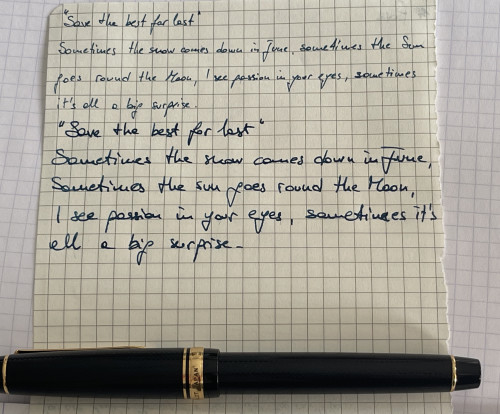 "Save the best for last"
Sometimes the snow comes down in June, sometimes the Sun
goes round the Moon, I see passion in your eyes, sometimes
it's all a big surprise.
"Save the best for last"
Sometimes the snow comes down in June,
Sometimes the sun goes round the Moon,
I see passion in your eyes, sometimes it's
all a big surprise.